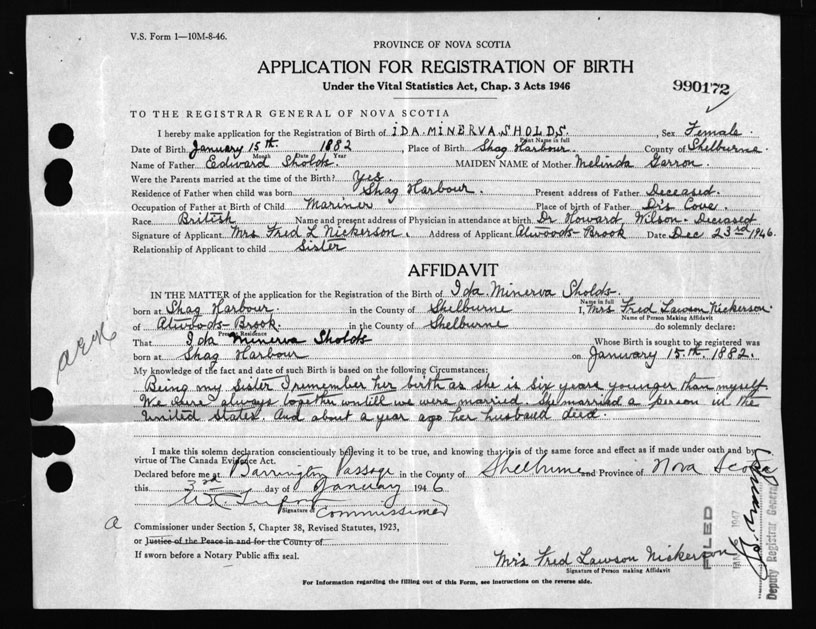 V.S. Form 1—10M-8-46.
PROVINCE OF NOVA SCOTIA
APPLICATION FOR REGISTRATION OF BIRTH
Under the Vital Statistics Act, Chap. 3 Acts 1946
990172
TO THE REGISTRAR GENERAL OF NOVA SCOTIA
I hereby make application for the Registration of Birth of IDA. MINERVA. SHOLDS. , Sex Female.
Print Name in full
Date of Birth January 15th. 1882 , Place of Birth Shag Harbour. County of Shelburne.
Month Date Year
Name of Father Edward Sholds. MAIDEN NAME of Mother Melinda Garron.
Were the Parents married at the time of Birth? Yes.
Residence of Father when child was born Shag Harbour. Present address of Father Deceased.
Occupation of Father at Birth of Child Mariner Place of birth of Father Dr's Cove.
Race British Name and present address of Physician in attendance at birth Dr Howard Wilson - Deceased
Signature of Applicant Mrs Fred L Nickerson. Address of Applicant Atwoods-Brook Date Dec 23rd 1946.
Relationship of Applicant to child Sister
AFFIDAVIT
IN THE MATTER of the application for the Registration of the Birth of Ida. Minerva Sholds.
Name in full
born at Shag Harbour. in the County of Shelburne I, Mrs Fred Lawson Nickerson.
Name of Person Making Affidavit
of Atwoods-Brook. in the County of Shelburne do solemnly declare:
Present Residence
That Ida Minerva Sholds Whose Birth is sought to be registered was
born at Shag Harbour on January 15th. 1882.
My knowledge of the fact and date of such Birth is based on the following Circumstances:
Being my sister I remember her birth as she is six years younger than myself
We were always together untill we were married. She married a person in the
United States. And about a year ago her husband died.
I make this solemn declaration conscientiously believing it to be true, and knowing that it is of the same force and effect as if made under oath and by
virtue of The Canada Evidence Act.
Declared before me at Barrington Passage in the County of Shelburne and Province of Nova Scotia
this 3rd day of January 1946
Signature of Commissioner
a Commissioner under Section 5, Chapter 38, Revised Statutes, 1923,
or Justice of the Peace in and for the County of
If sworn before a Notary Public affix seal.
Mrs Fred Lawson Nickerson
Signature of Person making Affidavit
For Information regarding the filling out of this Form, see instructions on the reverse side.
FILED
1947
Deputy Registrar General